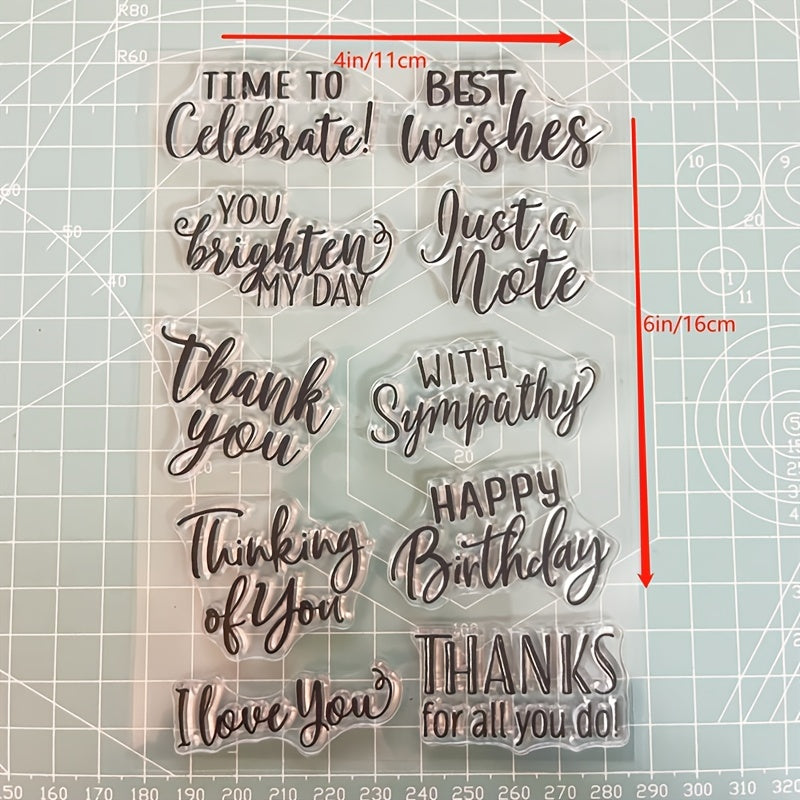 R80
4in/11cm
R60
TIME TO
Celebrate!
BEST
wishes
YOU
brighten
MY DAY
Just a
Note
6in/16cm
Thank
you
WITH
Sympathy
Thinking
of You
HAPPY
Birthday
I love You
THANKS
for all you do!
60
50
40
10
9
20
1
11
20
150 160 170 180 190 200 210 220 230 240 250 260 270 280 290 300 310 320